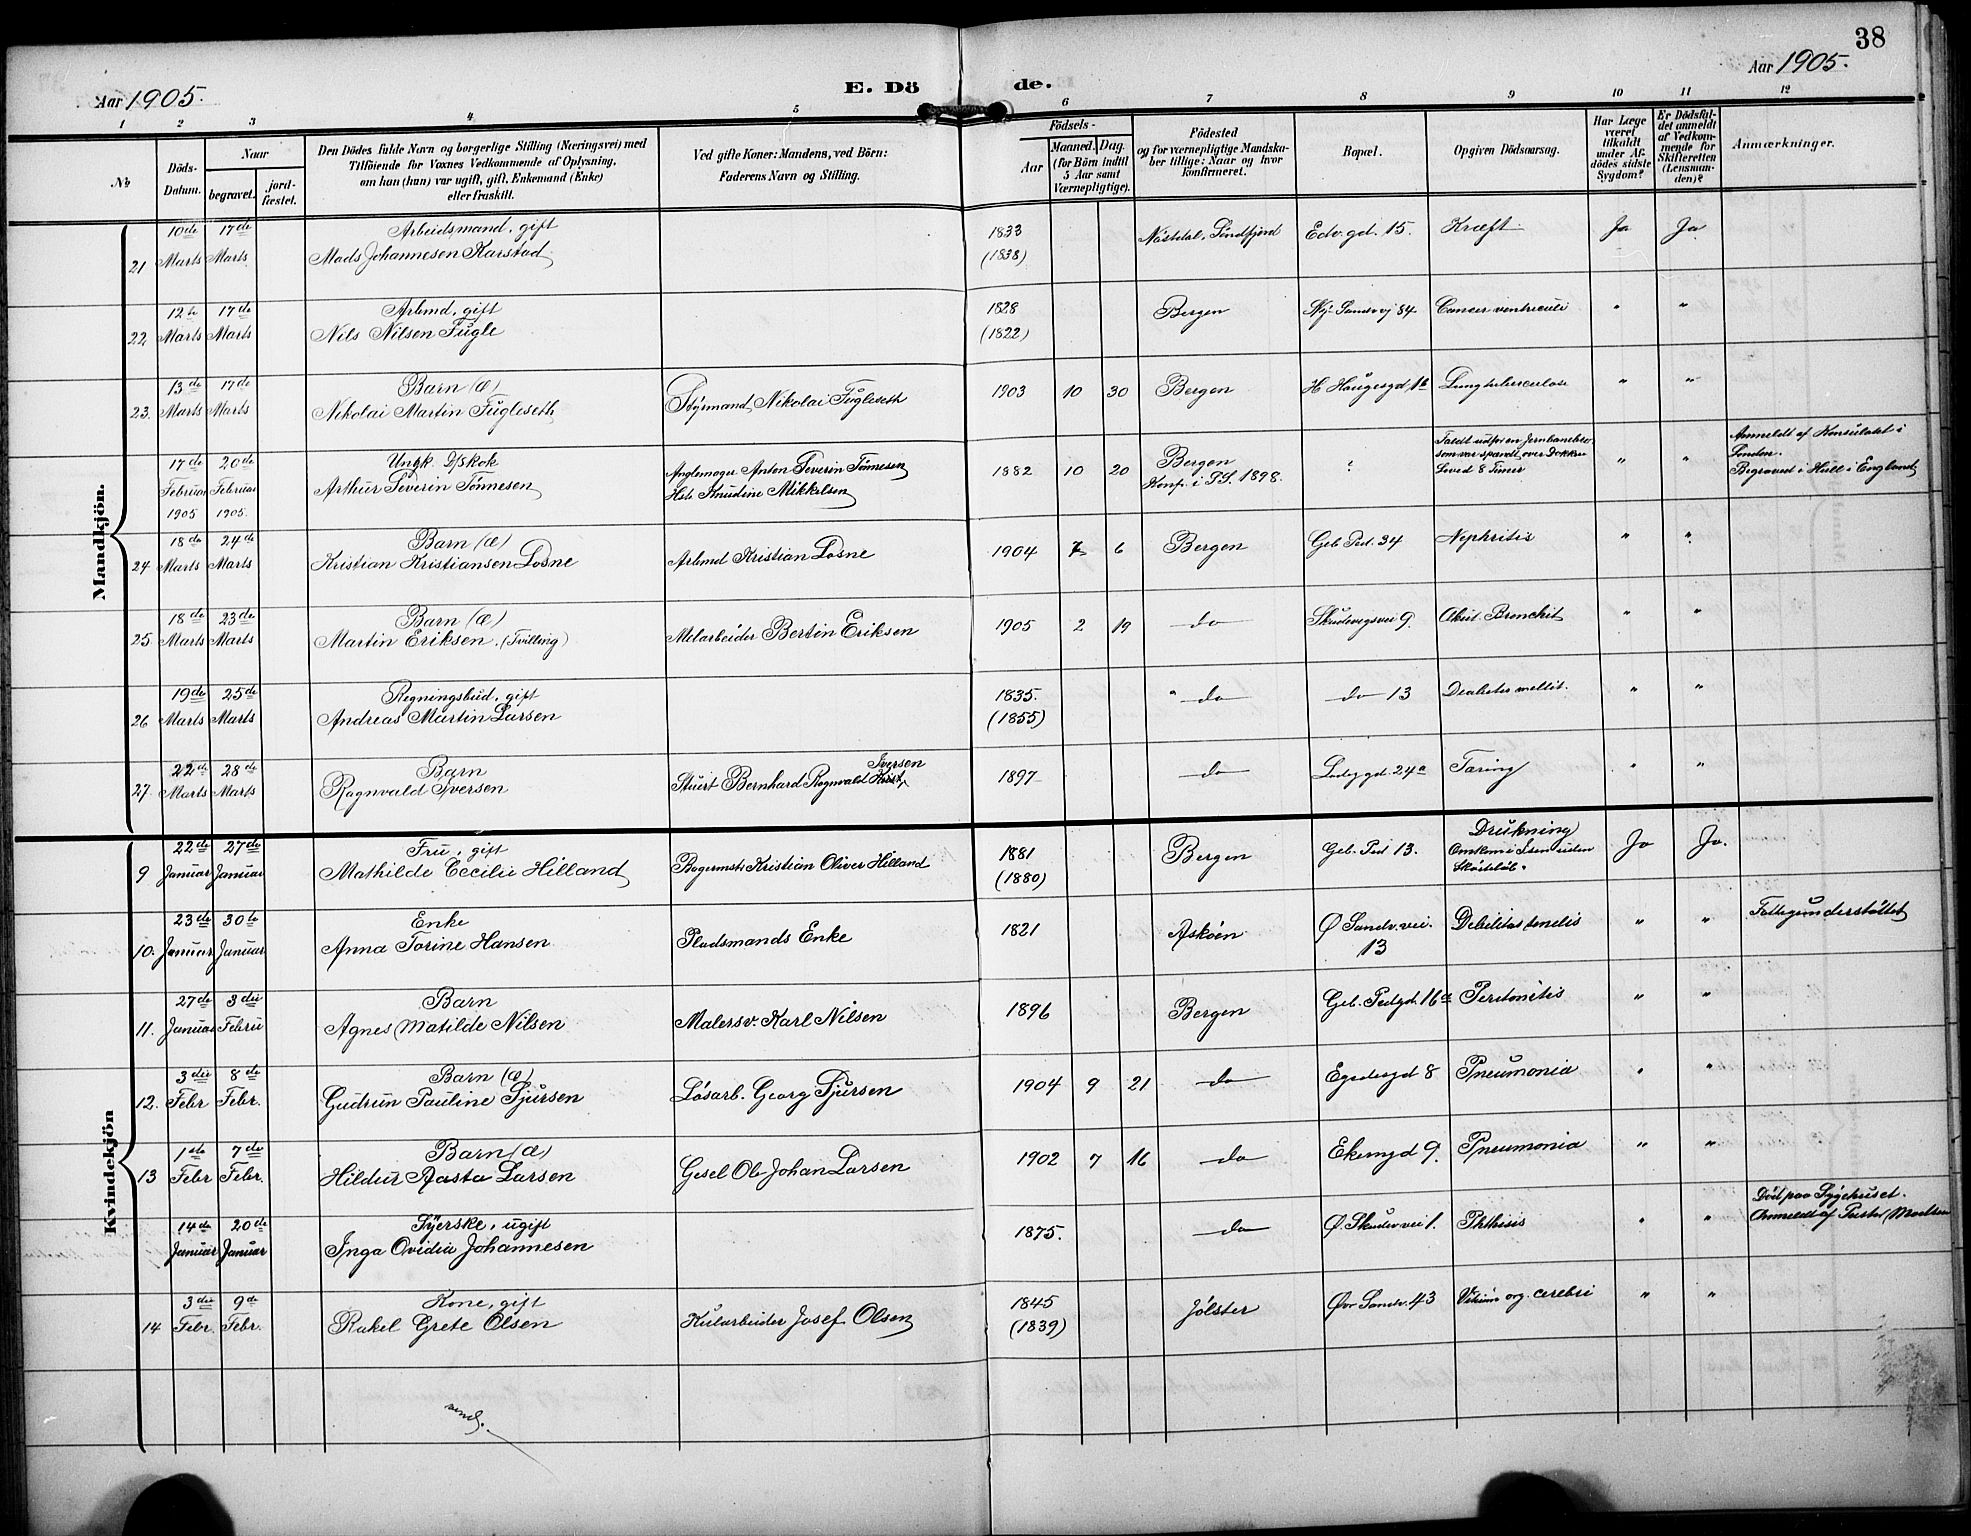 38
Aar 1905.
E. Dö de.
Aar 1905.
1 2 3 4 5 6 7 8 9 10 11 12
No
Döds-Datum.
Naar
begravet.
jord-fæstet.
Den Dödes fulde Navn og borgerlige Stilling (Næringsvei) med
Tilföiende for Voxnes Vedkommende af Oplysning,
om han (hun) var ugift, gift, Enkemand (Enke)
eller fraskilt.
Ved gifte Koner: Mandens, ved Börn:
Faderens Navn og Stilling.
Födsels-
Aar
Maaned. Dag.
(for Börn indtil
5 Aar samt
Værnepligtige).
Födested
og for værnepligtige Mandska-
ber tillige: Naar og hvor
konfirmeret.
Bopæl.
Opgiven Dödsaarsag.
Har Læge
været
tilkaldt
under Af-
dödes sidste
Sygdom?
Er Dödsfal-
det anmeldt
af Vedkom-
mende for
Skifteretten
(Lensman-
den)?
Anmærkninger.
Mandkjön.
10de 17de Arbeidsmand, gift 1833 Edv. gd. 15. Kræft Ja Ja
21 Marts Marts Mads Johannesen Karstad (1838)
12te 17de Arbmd, gift 1828 Bergen Cancer ventriculi " "
22 Marts Marts Nils Nilsen Fugle (1822)
13de 17de Barn (Æ) Styrmand Nikolai Fugleseth 1903 10 30 Bergen H. Haugesgd 1b Lungtuberculose " "
23. Marts Marts Nikolai Martin Fugleseth
17de 20de Ungk. D/skok Anton Severin Tönnesen 1882 10 20 Bergen
Februar Februar Arthur Severin Tönnesen Knudine Mikkelsen Konf. i 1898.
1905 1905.
som var spændt over Dokken
Leved 8 Timer " "
Anmeldt af Konsulatet i
London.
Begraved i Hull i England
18de 24de Barn (Æ) Arbmd Kristian Losne 1904 7 6 Bergen Geb Ped. 34 Nephritis " "
24 Marts Marts Kristian Kristiansen Losne
18de 23de Barn (Æ) Bertin Eriksen 1905 2 19 do Skudevigsvei 9. Akut Bronchit " "
25 Marts Marts Martin Eriksen. (Tvilling)
19de 25de Regningsbud, gift 1835. " do do 13 Diabetes mellit. " "
26 Marts Marts Andreas Martin Larsen (1855)
22de 28de Barn Stuert Bernhard Ragnvald Iversen 1897 do 24a Tæring " "
27. Marts Marts Ragnvald Iversen
Kvindekjön
22de 27de Fru, gift Bogermstr. Kristian Oliver Hilland 1881 Bergen Geb. Ped 13. Drukning Ja Ja.
9 Januar Januar Mathilde Cecilie Hilland (1880)
Omkom i Isen under
Skøiteløb.
23de 30te Enke Pladsmands Enke 1821 Askøen Ø Sandv. vei. 13 Debilitas senilis " " Fattigunderstøttet
10. Januar Januar Anna Torine Hansen
27de 3die Barn Malersv. Karl Nilsen 1896 Bergen Geb. Pedgd. 16a Peritonitis " "
11. Januar Febru Agnes Matilde Nilsen
3die 8de Barn (Æ) Løsarb. Georg Sjursen 1904 9 21 do Egedesgd 8 Pneumonia " "
12. Febr Febr. Gudrun Pauline Sjursen
1ste 7de Barn (Æ) Gesel Ole Johan Larsen 1902 7 16 do 9. Pneumonia " "
13 Febr Febr. Hildur Aasta Larsen
14de 20de Syerske, ugift 1875. do Ø. Skudev vei 1. Phthisis " " Död paa Sygehuset.
Januar Januar Inga Ovidia Johannesen Anmeldt af Pastor
3die 9de Kone, gift Kularbeider Josef Olsen 1845 Jølster Øvr Sandv. 43 Vitium org. cerebri " "
14 Febr. Febr. Rakel Grete Olsen (1839)
vend.